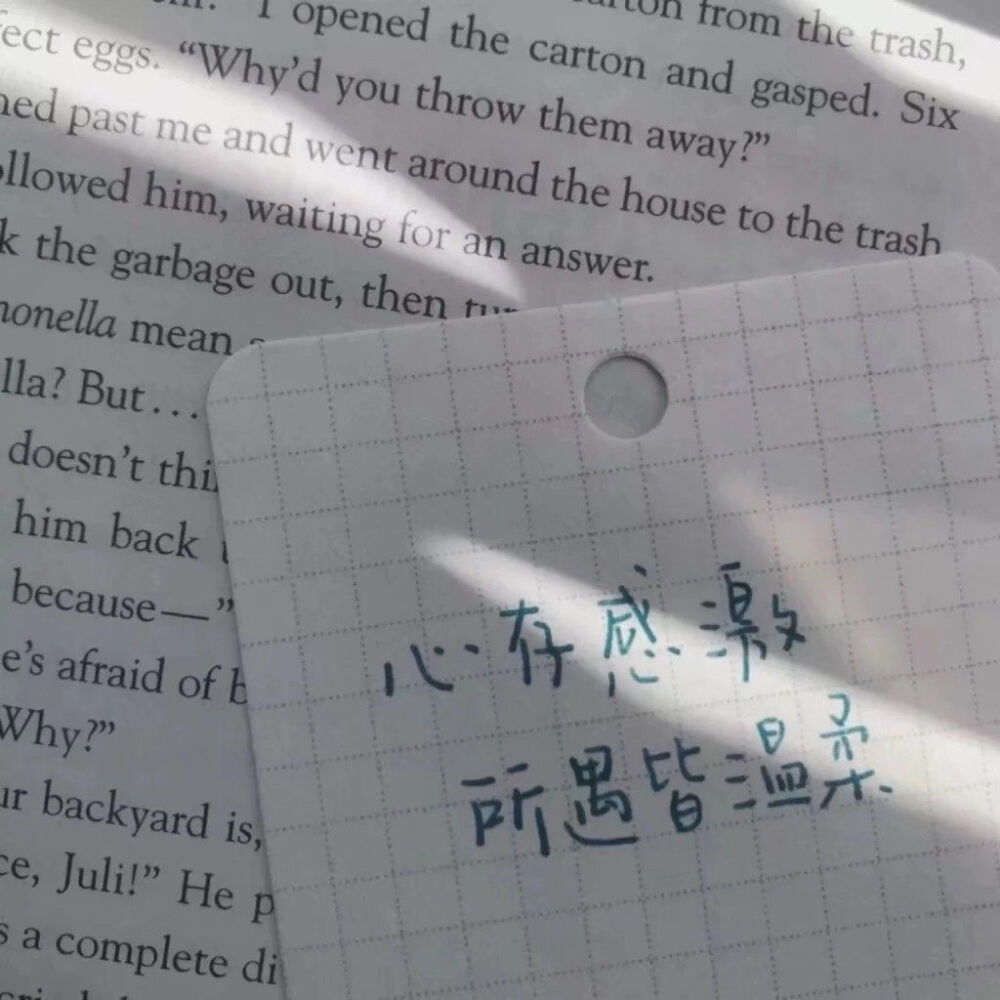 I opened the carton and gasped. Six
from the trash,
eggs. “Why’d you throw them away?”
past me and went around the house to the trash
him, waiting for an answer.
the garbage out, then
mean
lla? But...
doesn’t
him back
because—”
e’s afraid of
Why?”
backyard is,
Juli!” He p
s a complete di
心存感激
所遇皆温柔